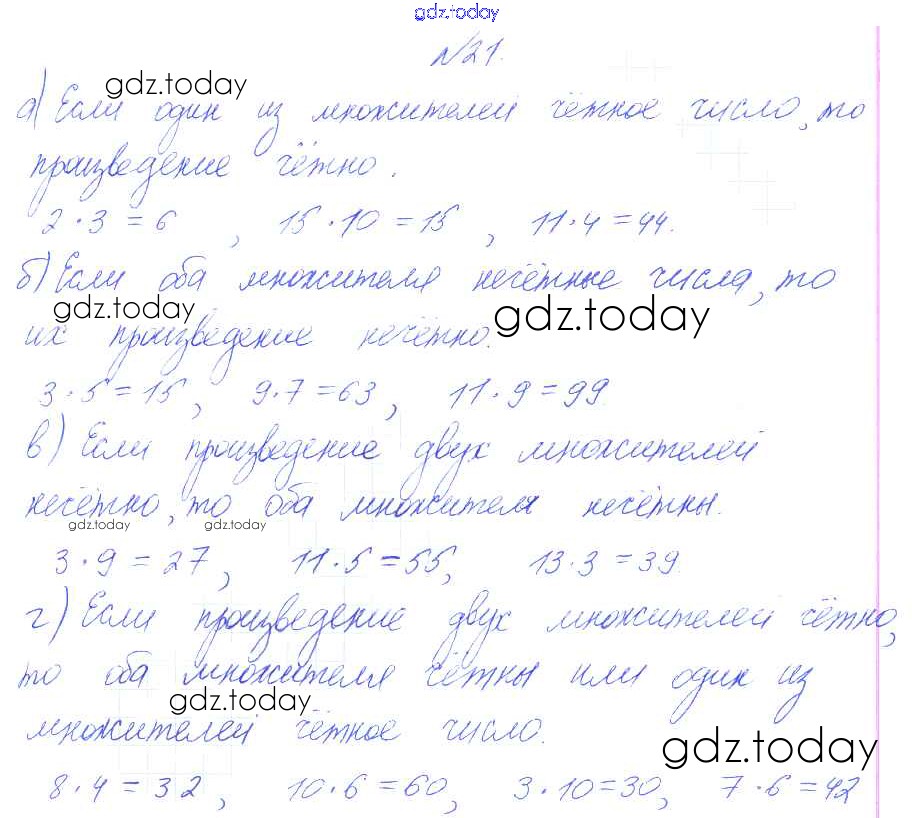 gdz.today
№21.
gdz.today
а) Если один из множителей чётное число, то
произведение чётно.
2·3=6, 15·10=15, 11·4=44.
б) Если оба множителя нечётные числа, то
gdz.today
gdz.today
их произведение нечётно.
3·5=15, 9·7=63, 11·9=99
в) Если произведение двух множителей
нечётно, то оба множителя нечётны.
gdz.today gdz.today
3·9=27, 11·5=55, 13·3=39
г) Если произведение двух множителей чётно,
то оба множителя чётны или один из
gdz.today
множителей чётное число.
gdz.today
8·4=32, 10·6=60, 3·10=30, 7·6=42